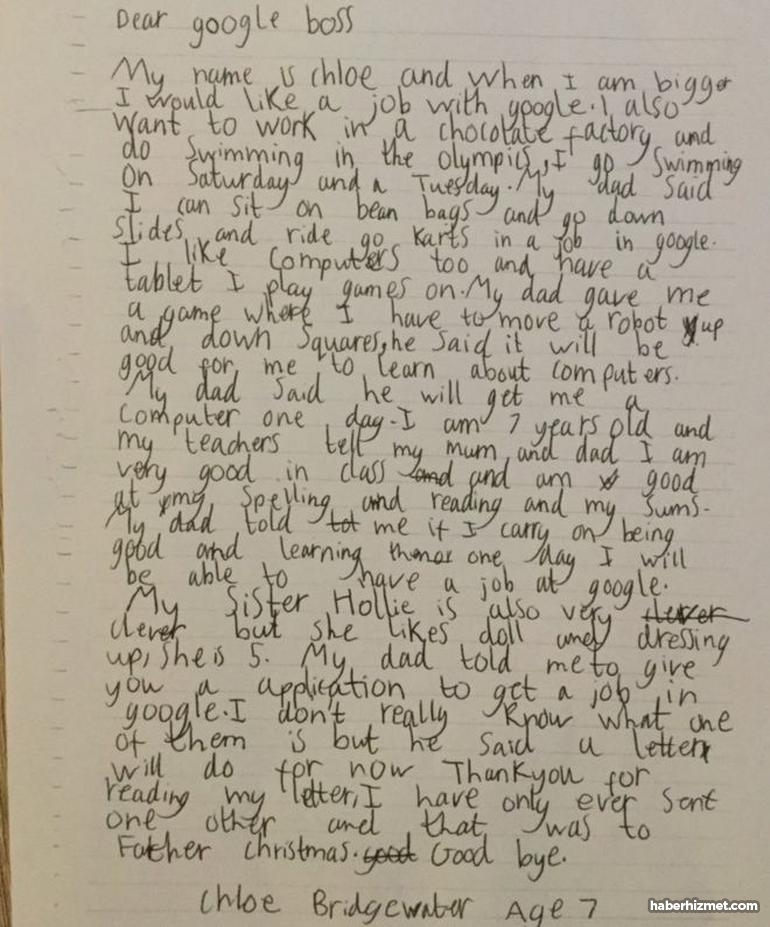 Dear google boss
My name is chloe and when I am bigger
I would like a job with google. I also
want to work in a chocolate factory and
do swimming in the olympics, I go swimming
on Saturday and a Tuesday. My dad said
I can sit on bean bags and go down
slides and ride go karts in a job in google.
I like computers too and have a
tablet I play games on. My dad gave me
a game where I have to move a robot up
and down squares, he said it will be
good for me to learn about computers.
My dad said he will get me a
computer one day. I am 7 years old and
my teachers tell my mum and dad I am
very good in class and and am good
at my spelling and reading and my sums.
My dad told tot me if I carry on being
good and learning one day I will
be able to have a job at google.
My sister Hollie is also very clever
clever but she likes doll and dressing
up, she is 5. My dad told me to give
you a application to get a job in
google. I don't really know what one
of them is but he said a letter
will do for now Thankyou for
reading my letter, I have only ever sent
one other and that was to
Father christmas. good Good bye.
Chloe Bridgewater Age 7
haberhizmet.com